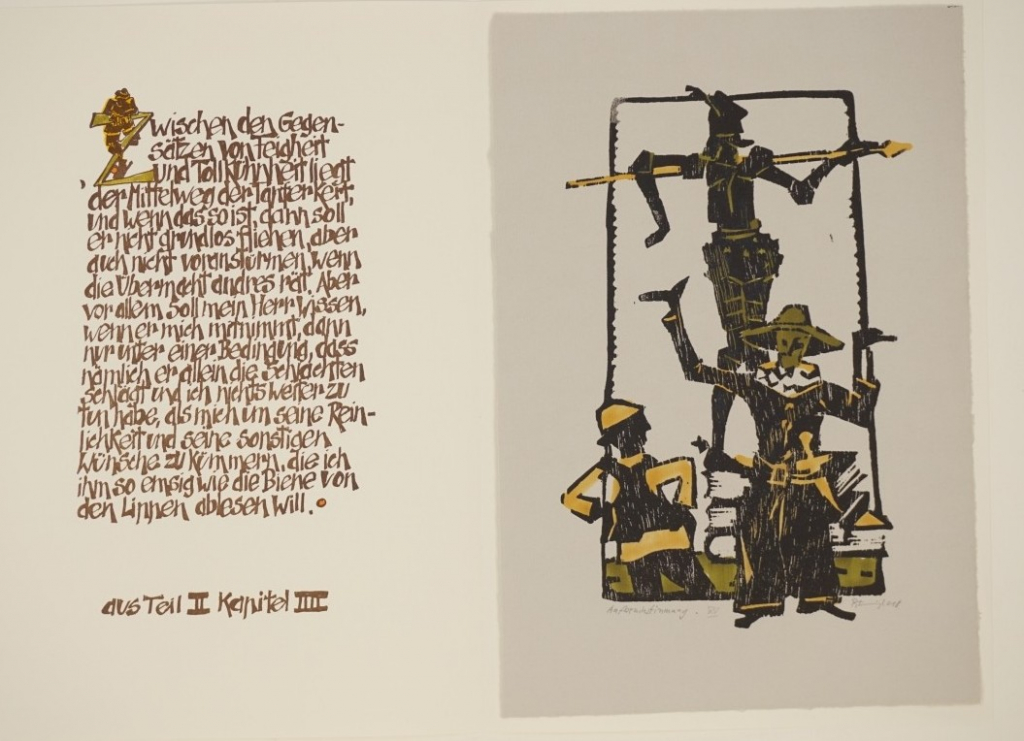 Zwischen den Gegen-
sätzen von Feigheit
und Tollkühnheit liegt
der Mittelweg der Tapferkeit,
und wenn das so ist, dann soll
er nicht grundlos fliehen, aber
auch nicht voranstürmen, wenn
die Übermacht andres rät. Aber
vor allem soll mein Herr wissen,
wenn er mich mitnimmt, dann
nur unter einer Bedingung, dass
nämlich er allein die Schlachten
schlägt und ich nichts weiter zu
tun habe, als mich um seine Rein-
lichkeit und seine sonstigen
Wünsche zu kümmern, die ich
ihm so emsig wie die Biene von
den Linnen ablesen will.
aus Teil II Kapitel IIII